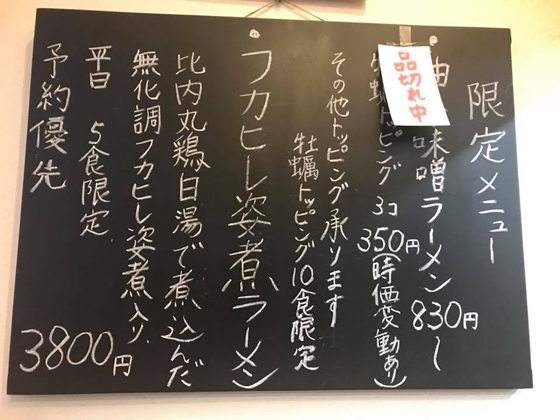 限定メニュー
味噌ラーメン 830円〜
品切れ中
トッピング 3コ 350円(時価変動あり)
その他トッピング承ります
牡蠣トッピング10食限定
フカヒレ姿煮ラーメン
比内丸鶏白湯で煮込んだ
無化調フカヒレ姿煮入り
平日 5食限定
予約優先
3800円